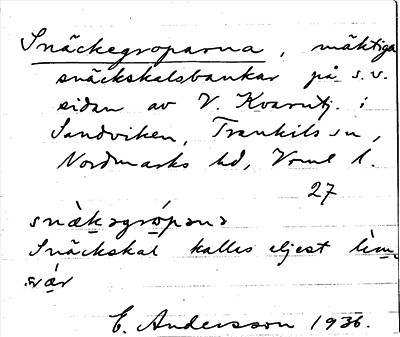 Snäckegroparna, mäktiga
snäckskalsbankar på s.v.
sidan av V. Kvarntj. i
Sandviken, Trankils sn,
Nordmarks hd, Vrml l.
27
snäkəgrópənə
Snäckskal kalles eljest
E. Andersson 1936.